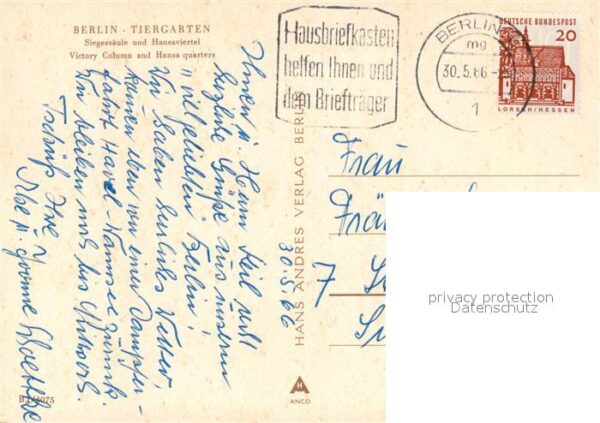 BERLIN - TIERGARTEN
Siegessäule und Hansaviertel
Victory Column and Hansa quarters
Ihnen u. Herrn Keil viele
herzliche Grüße aus unserem
"vielgeliebten" Berlin!
Wir haben herrliches Wetter,
kamen eben von einer Dampfer-
fahrt Havel-Wannsee zurück.
Wir bleiben noch bis Mittwoch.
Tschüß Ihre
Ilse u. Yvonne
30.5.66
B 1/4075
HANS ANDRES VERLAG BERLIN
H
ANCO
Hausbriefkasten
helfen Ihnen und
dem Briefträger
BERLIN
mg
30.5.66
1
DEUTSCHE BUNDESPOST
20
LORSCH/HESSEN
Frau
7
privacy protection
Datenschutz